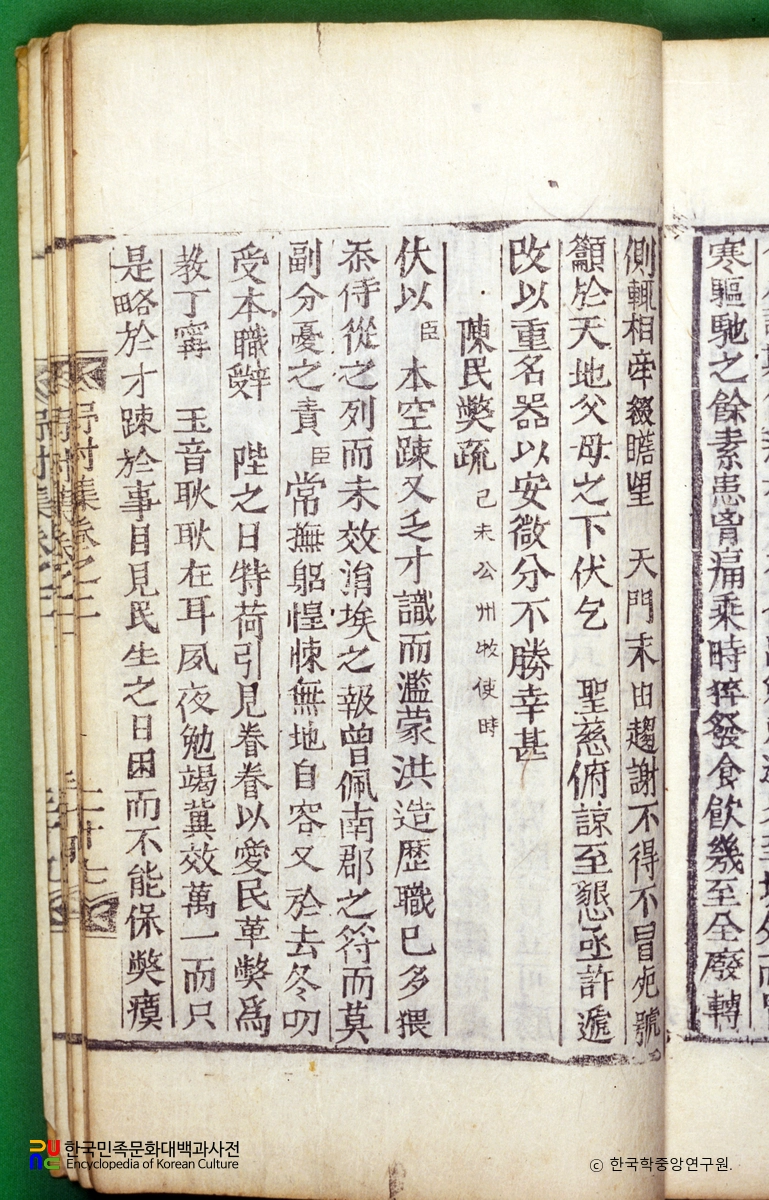 寒驅馳之餘素患胷痛乘時猝發食飮幾至全廢轉
側輒相牽綴瞻望 天門末由趨謝不得不冒死號
籲於天地父母之下伏乞 聖慈俯諒至懇亟許遞
改以重名器以安微分不勝幸甚
陳民弊疏 己未公州牧使時
伏以臣本空踈又乏才識而濫蒙洪造歷職已多猥
忝侍從之列而未效涓埃之報曾佩南郡之符而莫
副分憂之責臣常撫躬惶悚無地自容又於去冬叨
受本職辭 陛之日特荷引見眷眷以愛民革弊爲
敎丁寧 玉音耿耿在耳夙夜勉竭冀效萬一而只
是略於才踈於事目見民生之日困而不能保弊瘼
野村集卷之二
二十七
한국민족문화대백과사전
Encyclopedia of Korean Culture
© 한국학중앙연구원.